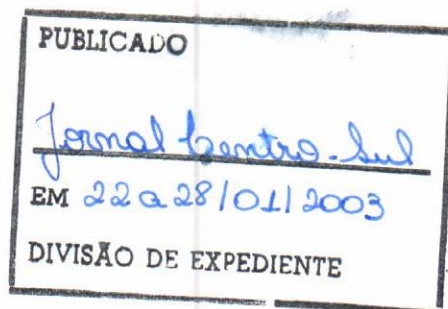 PUBLICADO
Jornal Centro-Sul
EM 22 a 28/01/2003
DIVISÃO DE EXPEDIENTE